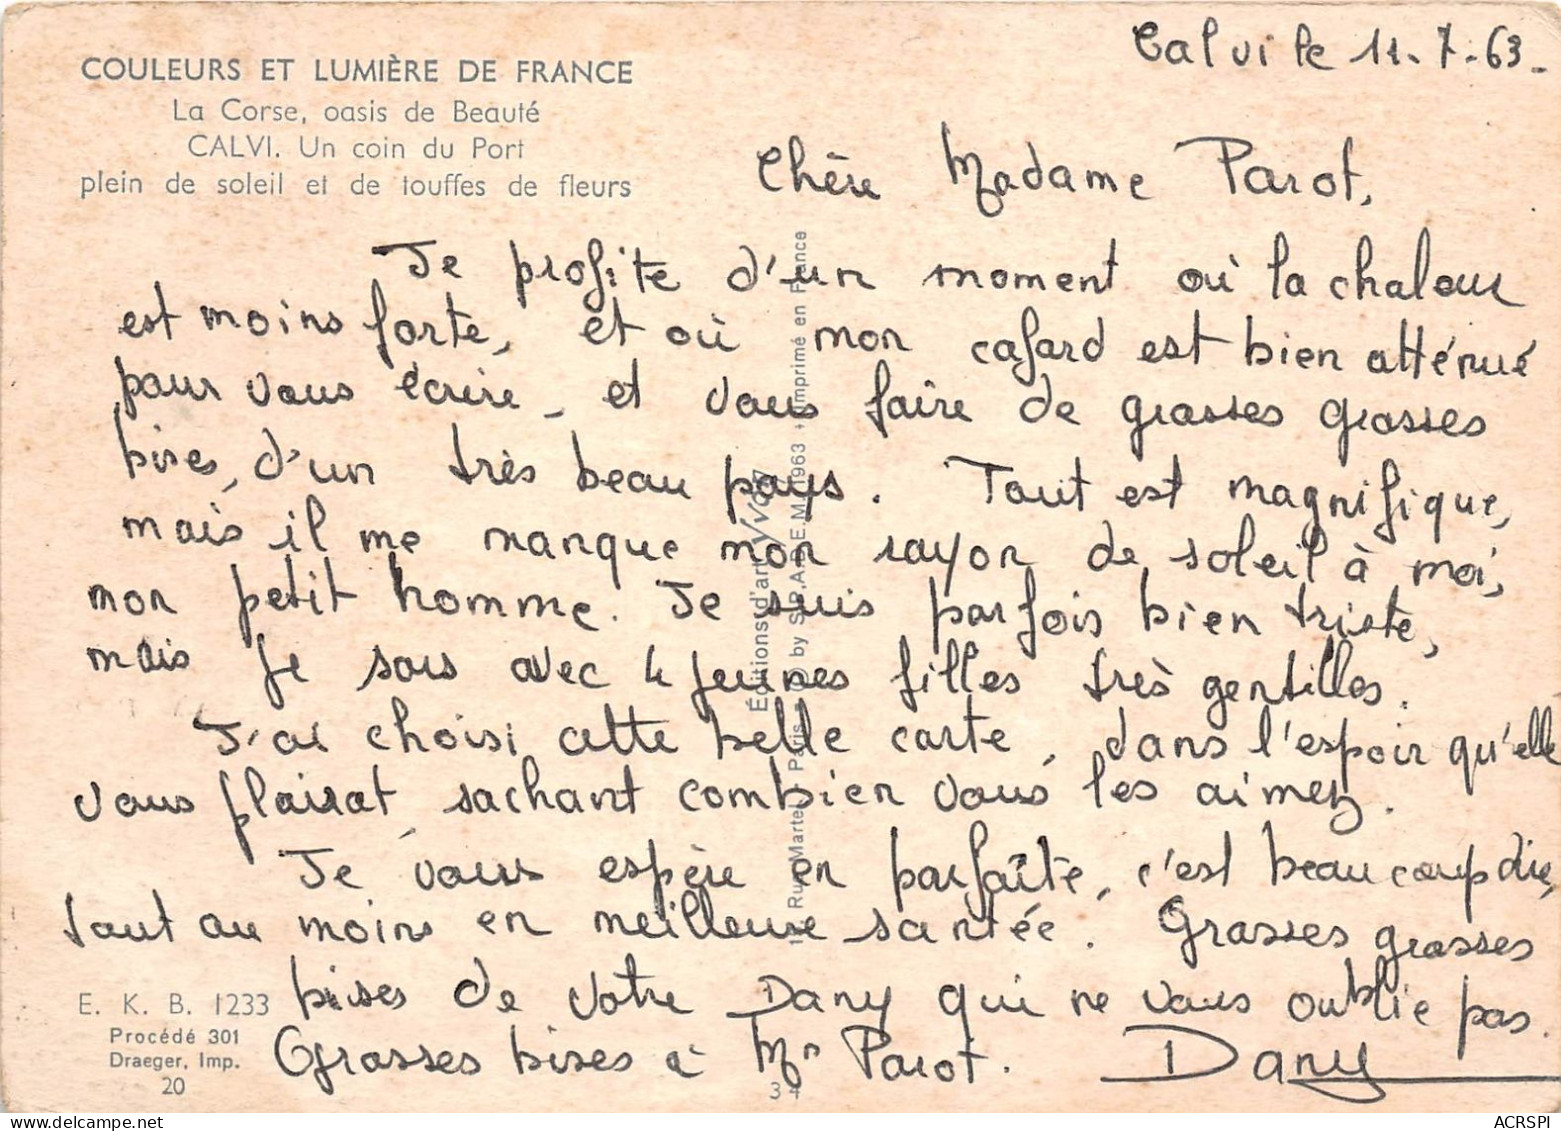 Calvi le 11-7-63-
COULEURS ET LUMIÈRE DE FRANCE
La Corse, oasis de Beauté
CALVI. Un coin du Port
plein de soleil et de touffes de fleurs
Chère Madame Parot,
Je profite d'un moment où la chaleur
est moins forte, et où mon cafard est bien atténué
pour vous écrire - et vous faire de grosses grosses
bises, d'un très beau pays. Tout est magnifique,
mais il me manque mon rayon de soleil à moi,
mon petit homme. Je suis parfois bien triste,
mais je sors avec 4 jeunes filles très gentilles.
J'ai choisi cette belle carte, dans l'espoir qu'elle
vous plairat, sachant combien vous les aimez.
Je vous espère en parfaîte, c'est beaucoup dire,
tout au moins en meilleure santée. Grosses grosses
bises de votre Dany qui ne vous oublie pas.
Grosses bises à Mr Parot. Dany
E. K. B. 1233
Procédé 301
Draeger, Imp.
20
34
Éditions d'art Yvon
Rue Martel, Paris - © by S.P.A.D.E.M. 1963 + Imprimé en France
ACRSPI